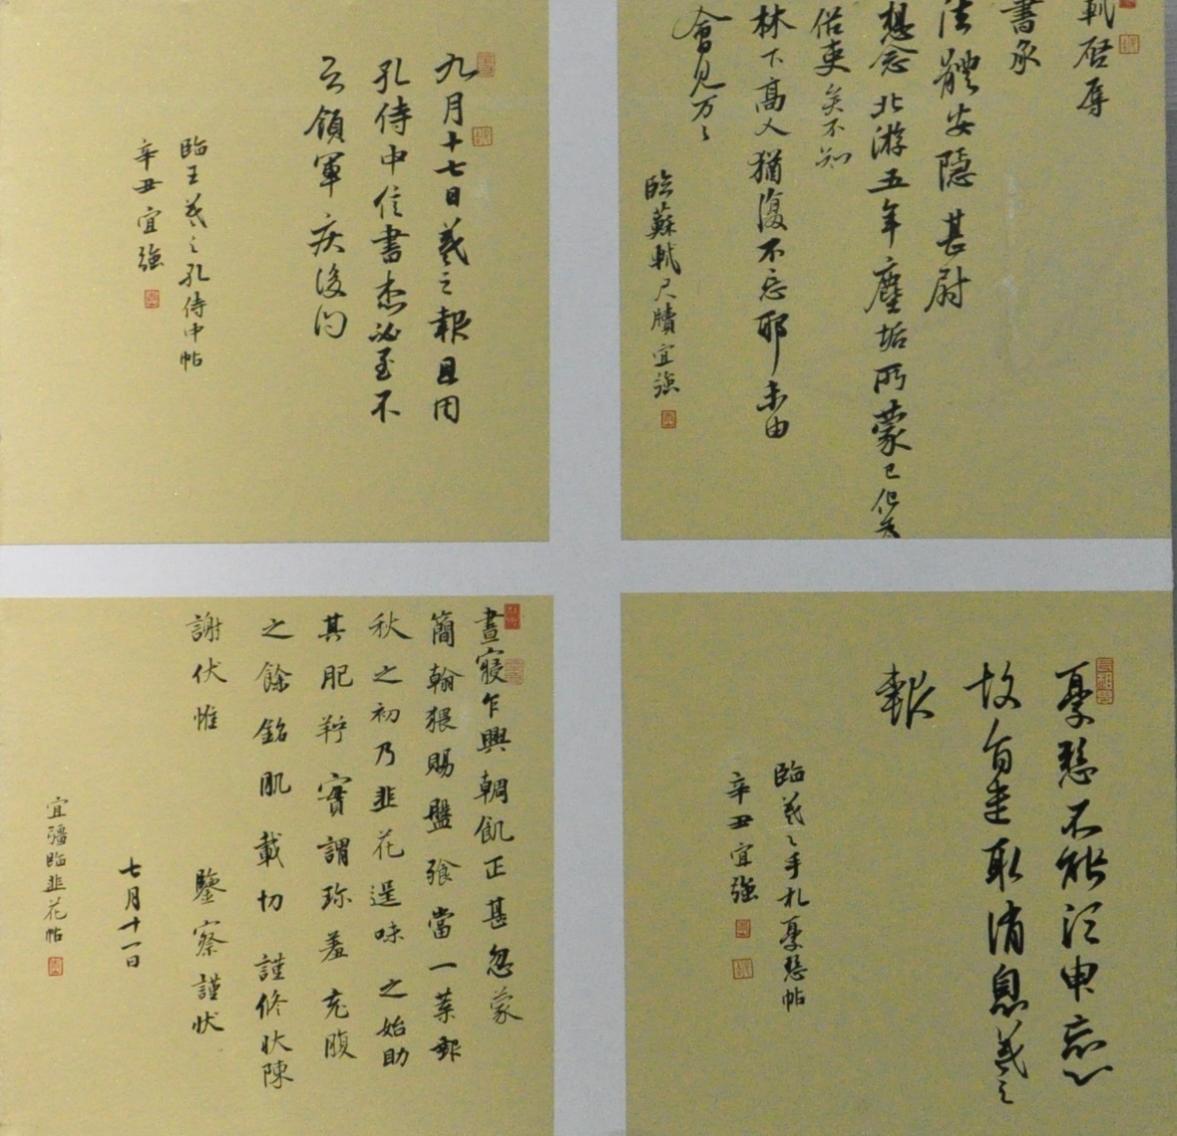 九月十七日羲之報且因
孔侍中信書想必至不
知領軍疾後問
臨王羲之孔侍中帖
辛丑宜強
軾啓辱
書承
法體安隱甚尉
想念北游五年塵垢所蒙已化為
俗吏矣不知
林下高人猶復不忘耶未由
會見万万
臨蘇軾尺牘宜強
晝寢乍興朝飢正甚忽蒙
簡翰猥賜盤飧當一葉報
秋之初乃韭花逞味之始助
其肥羜實謂珍羞充腹
之餘銘肌載切謹修狀陳
謝伏惟 鑒察謹狀
七月十一日
宜彊臨韭花帖
憂懸不能須臾忘心
故旨遣取消息羲之
報
臨羲之手札憂懸帖
辛丑宜強